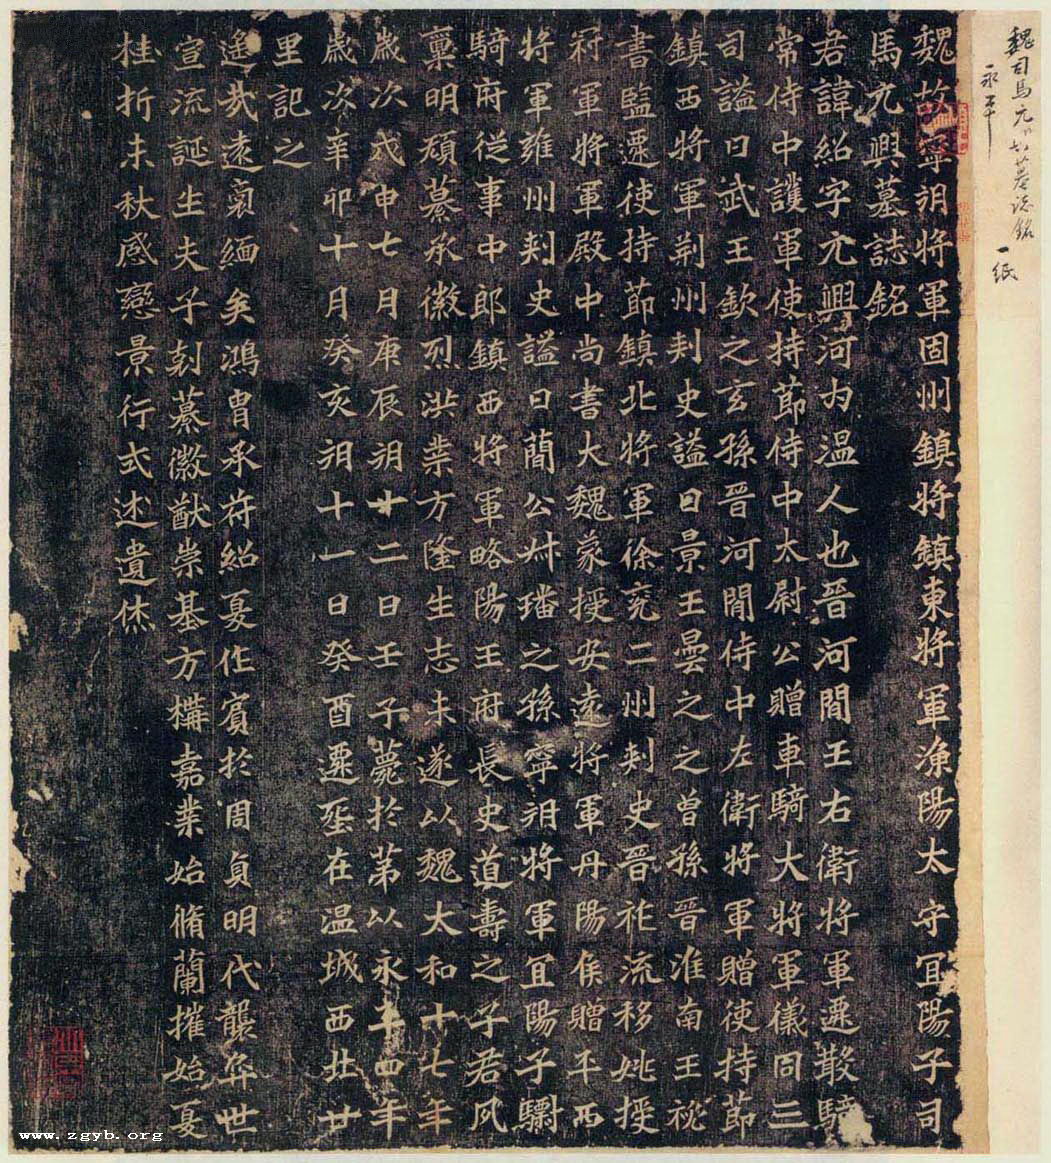 魏司馬元興墓誌銘一紙
永平
魏故寧朔將軍固州鎮將鎮東將軍漁陽太守宜陽子司
馬元興墓誌銘
君諱紹字元興河內溫人也晉河間王右衛將軍遷散騎
常侍中護軍使持節侍中太尉公贈車騎大將軍儀同三
司謚曰武王欽之玄孫晉河間侍中左衛將軍贈使持節
鎮西將軍荊州刾史謚曰景王曇之之曾孫晉淮南王秘
書監遷使持節鎮北將軍徐兗二州刾史晉祚流移姚授
冠軍將軍殿中尚書大魏蒙授安遠將軍丹陽侯贈平西
將軍雍州刾史謚曰簡公叔璠之孫寧朔將軍宜陽子驃
騎府從事中郎鎮西將軍略陽王府長史道壽之子君夙
稟明頎纂承徽烈洪業方隆生志未遂以魏太和十七年
歲次戊申七月庚辰朔廿二日壬子薨於第以永平四年
歲次辛卯十月癸亥朔十一日癸酉遷塟在溫城西北廿
里記之
遙哉遠裔緬矣鴻胄承苻紹夏作賓於周貞明代襲弈世
宣流誕生夫子剋纂徽猷崇基方構嘉業始脩蘭摧始夏
桂折未秋感戀景行式述遺烋
www.zgyb.org